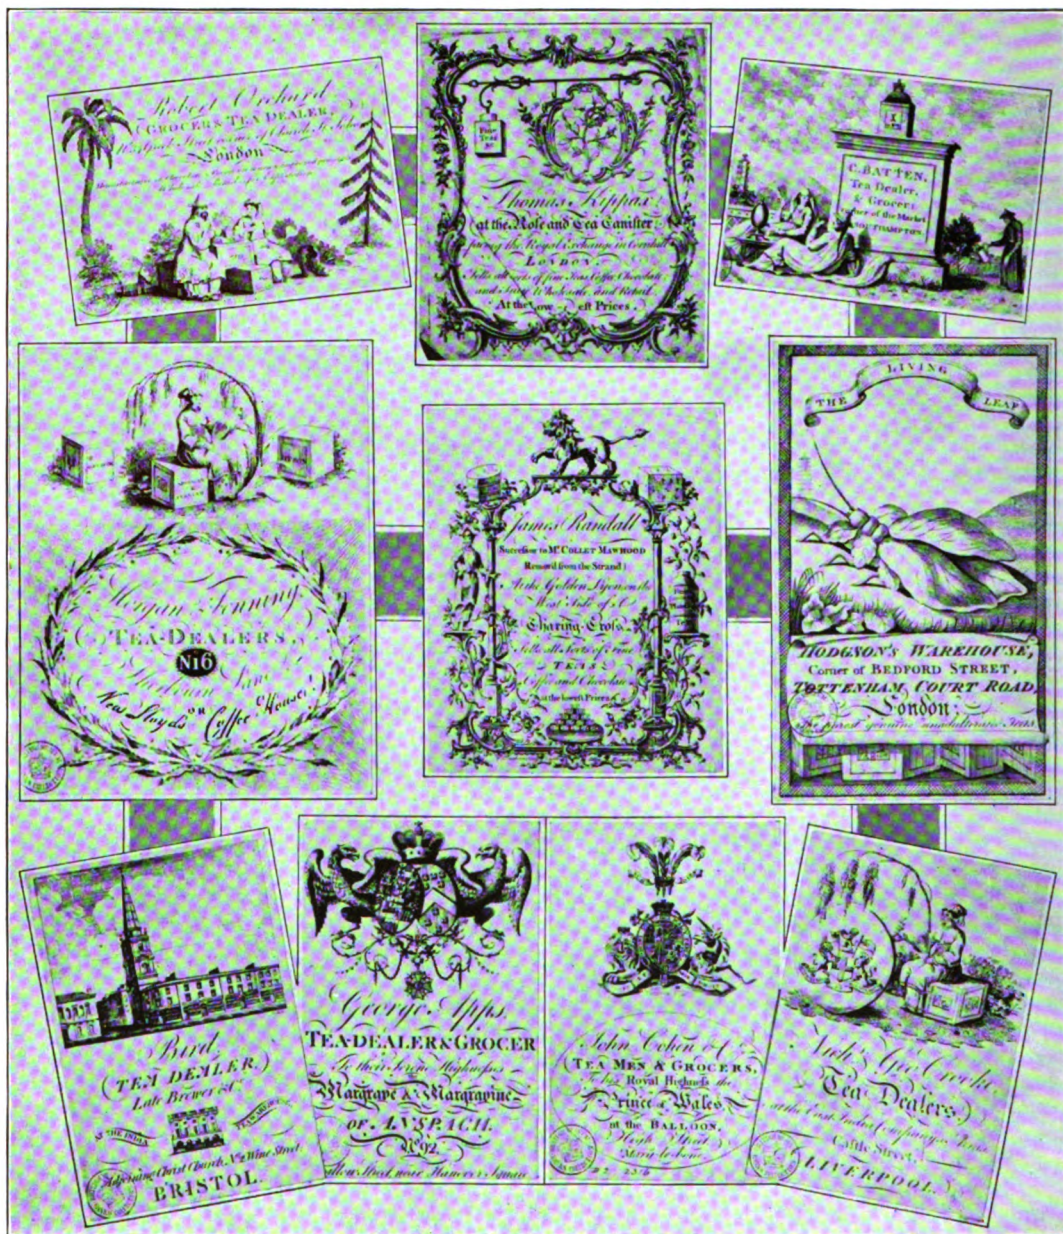 Robert Orchard
GROCER & TEA DEALER,
London
Thomas Kippax
at the Rose and Tea Canister
the Royal Exchange in Cornhill
LONDON
Sells all sorts of fine Teas, Coffee, Chocolate
and Wholesale and Retail
At the Low est Prices
C. BATTEN,
Tea Dealer,
& Grocer,
of the Market
SOUTHAMPTON.
Morgan Fenning
TEA-DEALERS,
No 6
New Lloyds OR Coffee House
James Randall
Successor to Mr. COLLET MAWHOOD
Remov'd from the Strand
At the Golden Lyon on the
West Side of
Charing-Cross
Sells all Sorts of fine
TEAS
Coffee and Chocolate
At the lowest Prices
THE LIVING LEAF
HODGSON'S WAREHOUSE,
Corner of BEDFORD STREET,
TOTTENHAM COURT ROAD,
London;
genuine unadulterated Teas
Bird,
(TEA DEALER,)
Late Brewer & Co.
AT THE INDIA
Adjoining Christ Church, No. Wine Street,
BRISTOL.
George Apps,
TEA-DEALER & GROCER
To their Serene Highnesses
Margrave & Margravine
OF ANSPACH.
No. 92,
Street near Hanover Square
John Cohen & Co.
(TEA MEN & GROCERS,
To his Royal Highness the
Prince of Wales,
at the BALLOON,
High Street
Mary le bone.
Geo. Crooke
Tea Dealers)
at the East India Company's
Castle Street,
LIVERPOOL.